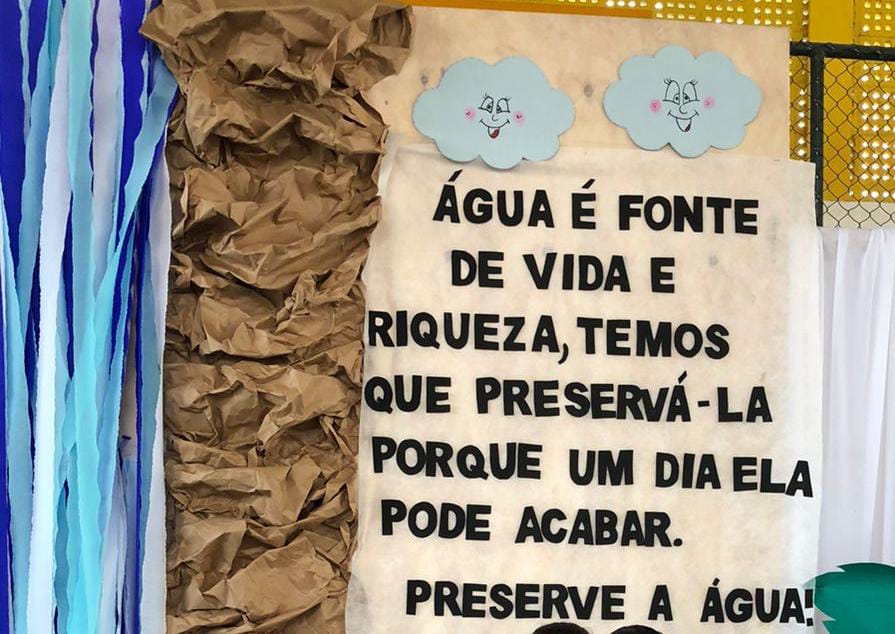 ÁGUA É FONTE
DE VIDA E
RIQUEZA, TEMOS
QUE PRESERVÁ-LA
PORQUE UM DIA ELA
PODE ACABAR.
PRESERVE A ÁGUA!